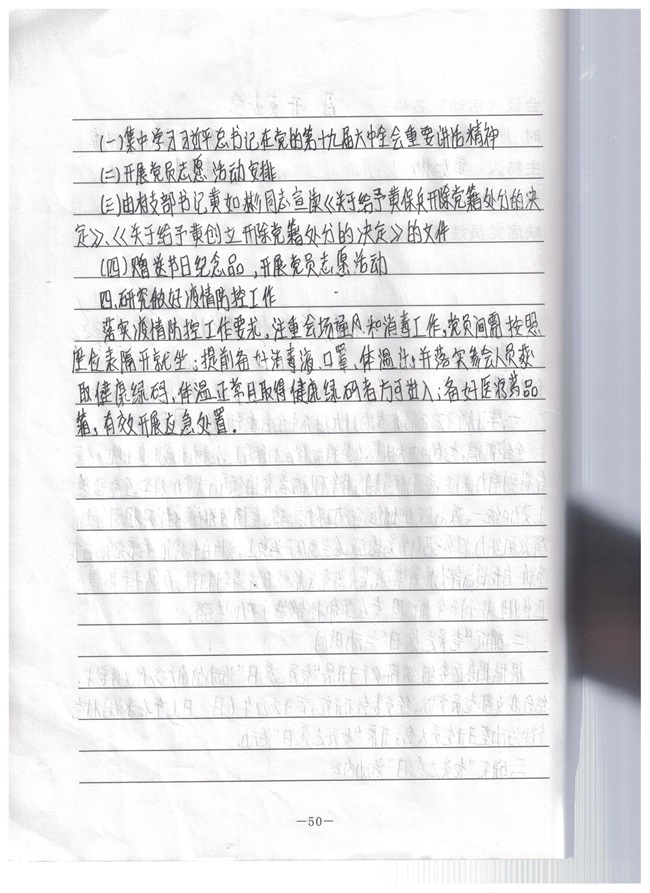 (一)集中学习习近平总书记在党的第十九届六中全会重要讲话精神
(二)开展党员志愿活动安排
(三)由村支部书记黄如彬同志宣读《关于给予黄保兵开除党籍处分的决
定》、《关于给予黄创立开除党籍处分的决定》的文件
(四)赠送节日纪念品,开展党员志愿活动
四.研究做好疫情防控工作
落实疫情防控工作要求,注重会场通风和消毒工作,党员间需按照
座位表隔开就坐;提前备好消毒液、口罩、体温计,并落实参会人员获
取健康绿码,体温正常且取得健康绿码者方可进入;备好医疗药品
箱,有效开展应急处置.
—50—